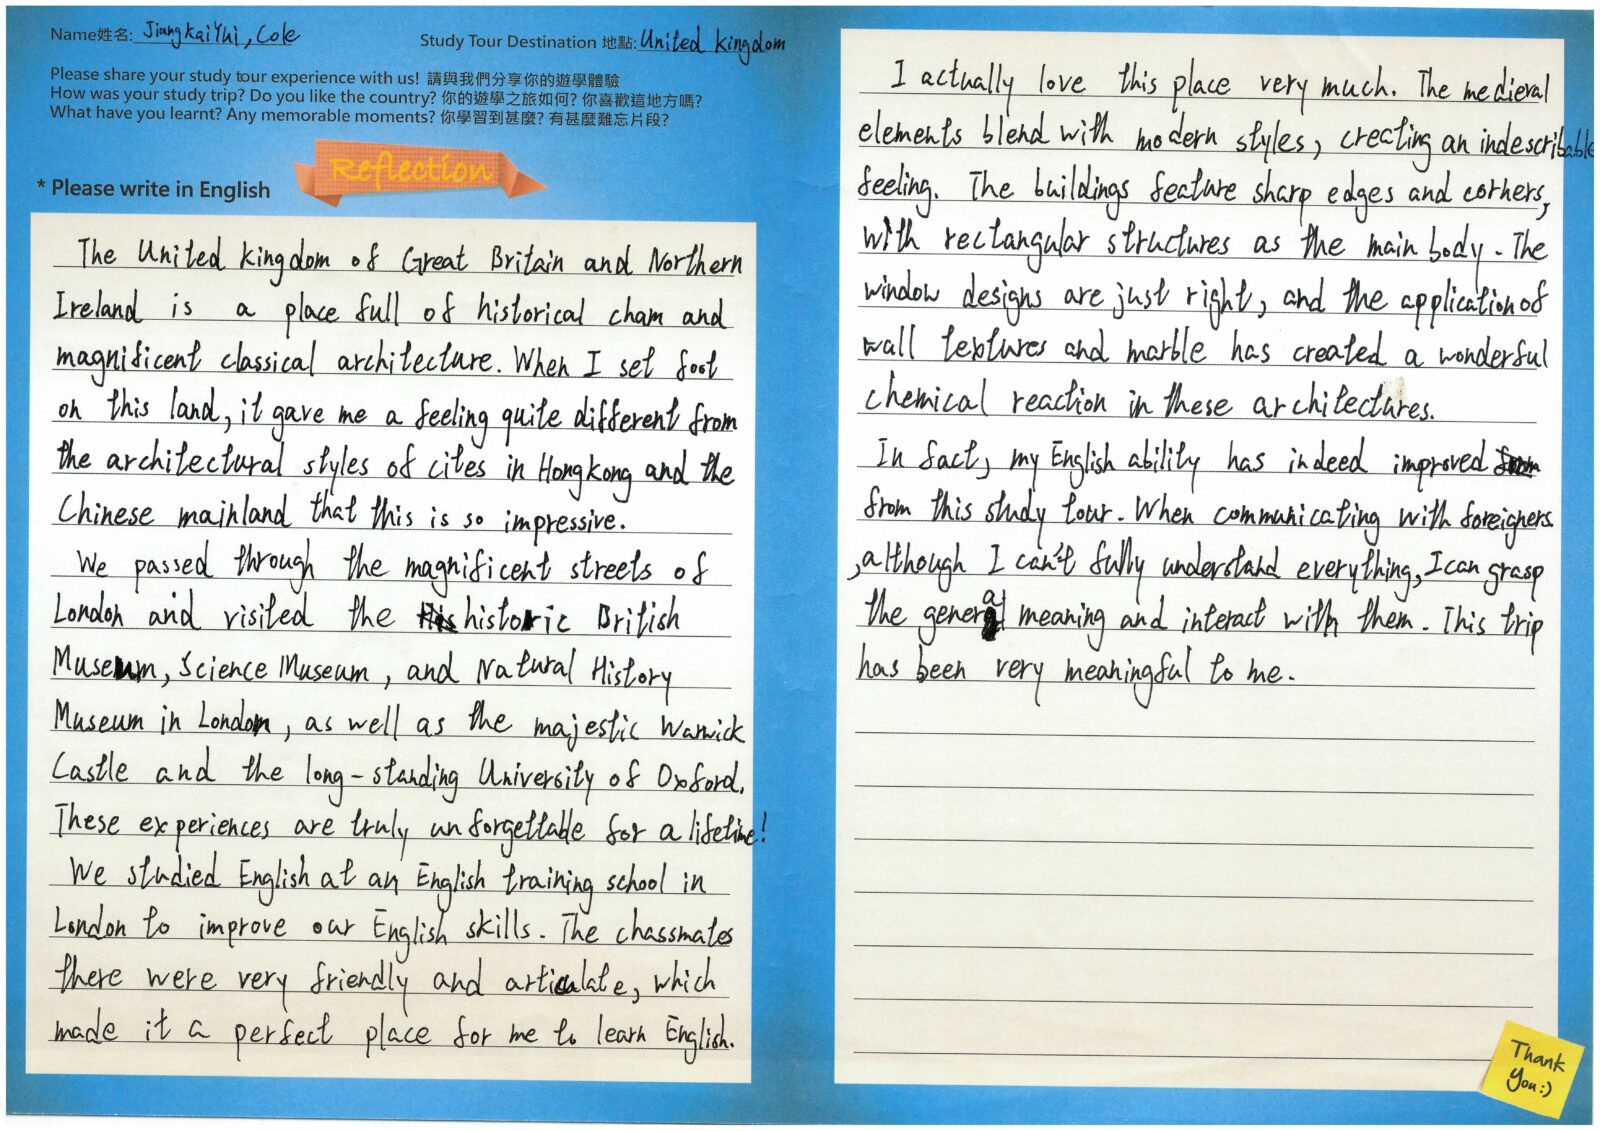 Name姓名: JiangKaiYhi, Cole
Study Tour Destination 地點: United Kingdom
Please share your study tour experience with us! 請與我們分享你的遊學體驗
How was your study trip? Do you like the country? 你的遊學之旅如何? 你喜歡這地方嗎?
What have you learnt? Any memorable moments? 你學習到甚麼? 有甚麼難忘片段?
Reflection
* Please write in English
The United Kingdom of Great Britain and Northern
Ireland is a place full of historical cham and
magnificent classical architecture. When I set foot
on this land, it gave me a feeling quite different from
the architectural styles of cites in Hong Kong and the
Chinese mainland that this is so impressive.
We passed through the magnificent streets of
London and visited the historic British
Museum, Science Museum, and Natural History
Museum in London, as well as the majestic Warwick
Castle and the long-standing University of Oxford.
These experiences are truly unforgettable for a lifetime!
We studied English at an English training school in
London to improve our English skills. The chassmates
there were very friendly and articulate, which
made it a perfect place for me to learn English.
I actually love this place very much. The medieval
elements blend with modern styles, creating an indescribable
feeling. The buildings feature sharp edges and corners,
with rectangular structures as the main body. The
window designs are just right, and the application of
wall textures and marble has created a wonderful
chemical reaction in these architectures.
In fact, my English ability has indeed improved
from this study tour. When communicating with foreigners
, although I can't fully understand everything, I can grasp
the general meaning and interact with them. This trip
has been very meaningful to me.
Thank
You:)